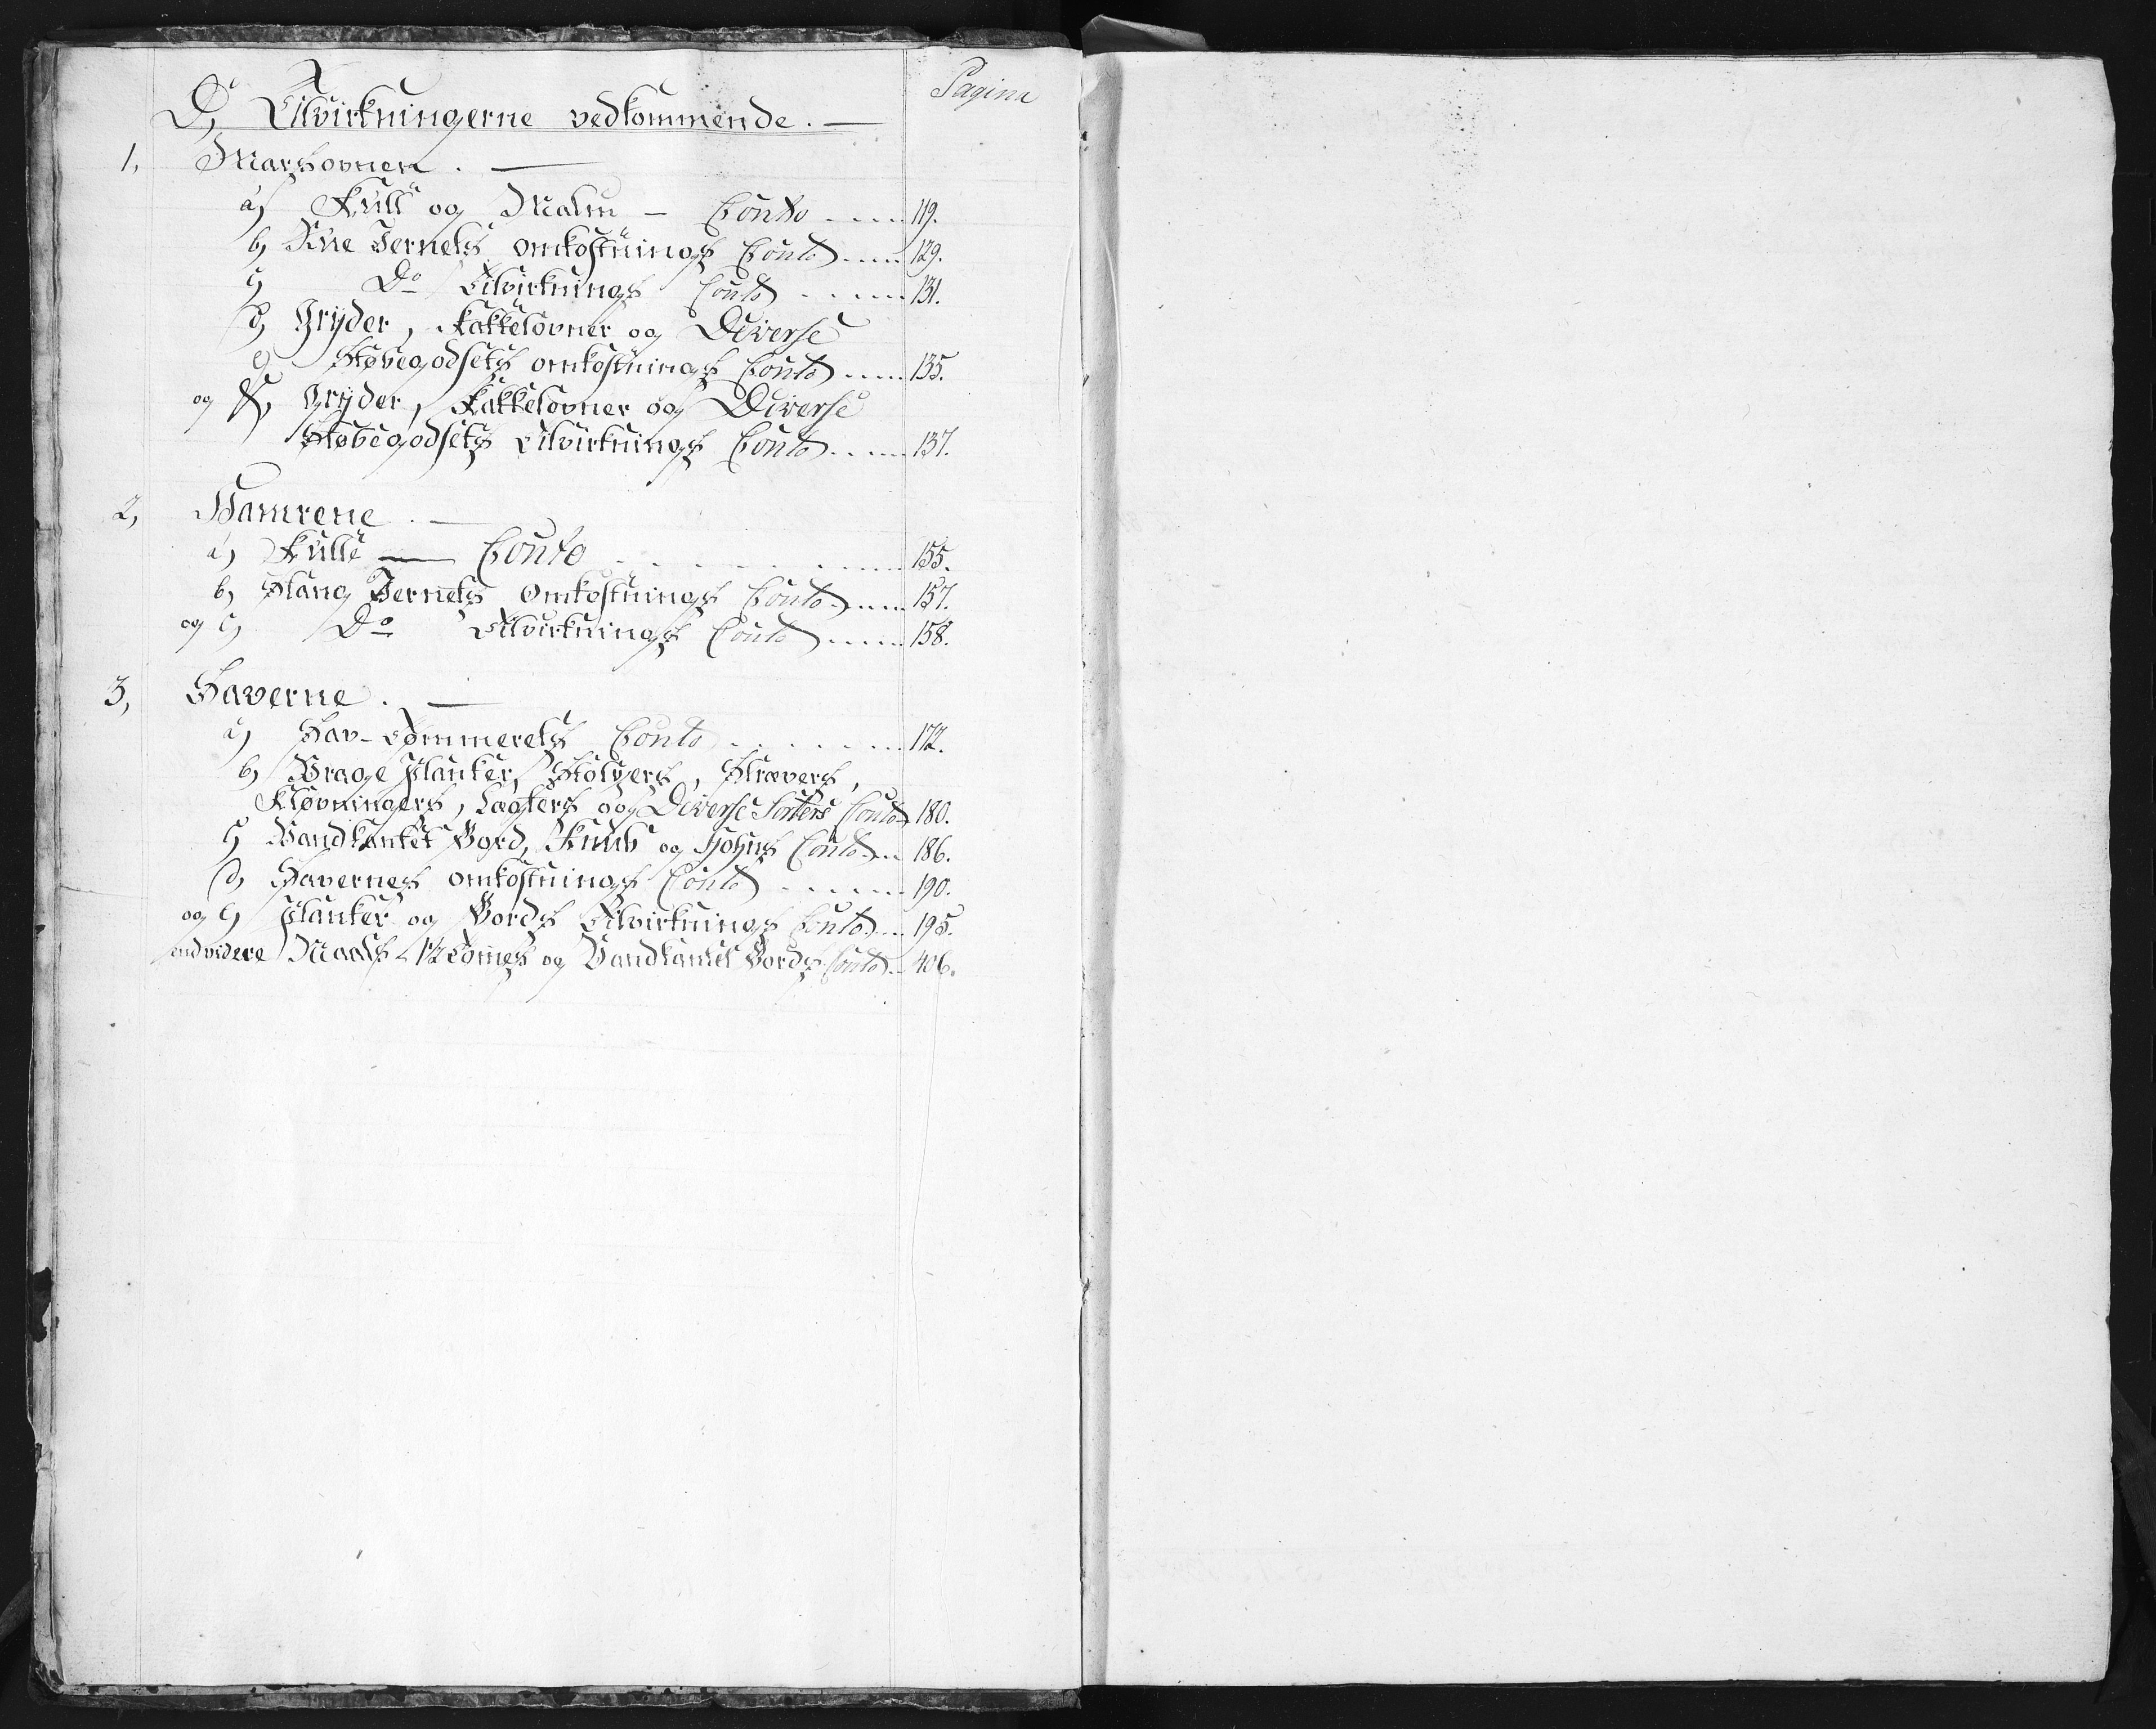 Pagina
D, Tilvirkningerne vedkommende. —
1, Marsovnen. —
a, Kull og Malm — Conto .... 119.
b, Rue Jernets omkostnings Conto .... 129.
c, Do Tilvirknings Conto .... 131.
d, Gryder, Kakkelovner og Diverse
e, Støbegodsets omkostnings Conto .... 135.
og f, Gryder, Kakkelovner og Diverse
Støbegodsets Tilvirknings Conto .... 137.
2, Hamrene. —
a, Kulle — Conto .... 155.
b, Stang Jernets omkostnings Conto .... 157.
og c, Do Tilvirknings Conto .... 158.
3, Saverne. —
a, Sav-Tømmerets Conto .... 172.
b, Vrage Planker, Stolpers, Strævers,
Kløvningers, Lægters og Diverse Sorters Conto 180.
c, Vandkantet Bord, Knub og Conto .. 186.
d, Savernes omkostnings Conto .... 190.
og e, Planker og Bords Tilvirknings Conto .. 195.
endvidere Maals 1 1/2 Tomes og Vandkantet Bords Conto .. 406.